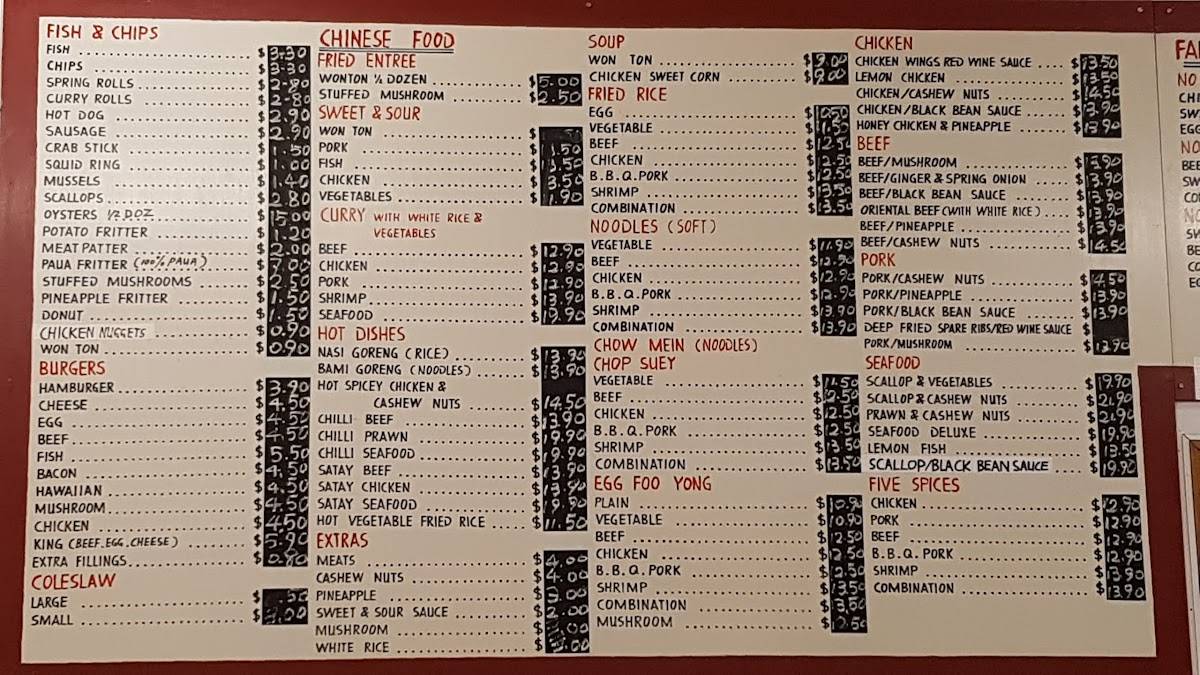 FISH & CHIPS
FISH $3.30
CHIPS $3.30
SPRING ROLLS $2.80
CURRY ROLLS $2.80
HOT DOG $2.90
SAUSAGE $2.90
CRAB STICK $1.50
SQUID RING $1.00
MUSSELS $1.40
SCALLOPS $2.80
OYSTERS 1/2 DOZ $15.00
POTATO FRITTER $1.20
MEAT PATTER $2.00
PAUA FRITTER (100% PAUA) $7.00
STUFFED MUSHROOMS $2.50
PINEAPPLE FRITTER $1.50
DONUT $1.50
CHICKEN NUGGETS $0.90
WON TON $0.90
BURGERS
HAMBURGER $3.90
CHEESE $4.50
EGG $4.50
BEEF $4.50
FISH $5.50
BACON $4.50
HAWAIIAN $4.50
MUSHROOM $4.50
CHICKEN $4.50
KING (BEEF.EGG.CHEESE) $5.90
EXTRA FILLINGS $0.80
COLESLAW
LARGE $
SMALL $
CHINESE FOOD
FRIED ENTREE
WONTON 1/2 DOZEN $5.00
STUFFED MUSHROOM $2.50
SWEET & SOUR
WON TON $
PORK $
FISH $
CHICKEN $
VEGETABLES $
CURRY WITH WHITE RICE &
VEGETABLES
BEEF $12.90
CHICKEN $12.90
PORK $12.90
SHRIMP $13.90
SEAFOOD $19.90
HOT DISHES
NASI GORENG (RICE) $13.90
BAMI GORENG (NOODLES) $13.90
HOT SPICEY CHICKEN &
CASHEW NUTS $14.50
CHILLI BEEF $13.90
CHILLI PRAWN $19.90
CHILLI SEAFOOD $19.90
SATAY BEEF $13.90
SATAY CHICKEN $13.90
SATAY SEAFOOD $19.90
HOT VEGETABLE FRIED RICE $11.50
EXTRAS
MEATS $4.00
CASHEW NUTS $4.00
PINEAPPLE $
SWEET & SOUR SAUCE $2.00
MUSHROOM $
WHITE RICE $
SOUP
WON TON $9.00
CHICKEN SWEET CORN $9.00
FRIED RICE
EGG $10.50
VEGETABLE $11.50
BEEF $12.50
CHICKEN $12.50
B.B.Q.PORK $12.50
SHRIMP $13.50
COMBINATION $13.50
NOODLES (SOFT)
VEGETABLE $11.90
BEEF $12.90
CHICKEN $12.90
B.B.Q.PORK $12.90
SHRIMP $13.90
COMBINATION $13.90
CHOW MEIN (NOODLES)
CHOP SUEY
VEGETABLE $11.50
BEEF $12.50
CHICKEN $12.50
B.B.Q.PORK $12.50
SHRIMP $13.50
COMBINATION $13.50
EGG FOO YONG
PLAIN $10.90
VEGETABLE $10.90
BEEF $12.50
CHICKEN $12.50
B.B.Q.PORK $12.50
SHRIMP $13.50
COMBINATION $13.50
MUSHROOM $12.50
CHICKEN
CHICKEN WINGS RED WINE SAUCE $13.50
LEMON CHICKEN $13.50
CHICKEN/CASHEW NUTS $14.50
CHICKEN/BLACK BEAN SAUCE $13.90
HONEY CHICKEN & PINEAPPLE $13.90
BEEF
BEEF/MUSHROOM $13.90
BEEF/GINGER & SPRING ONION $13.90
BEEF/BLACK BEAN SAUCE $13.90
ORIENTAL BEEF (WITH WHITE RICE) $13.90
BEEF/PINEAPPLE $13.90
BEEF/CASHEW NUTS $14.50
PORK
PORK/CASHEW NUTS $14.50
PORK/PINEAPPLE $13.90
PORK/BLACK BEAN SAUCE $13.90
DEEP FRIED SPARE RIBS/RED WINE SAUCE $
PORK/MUSHROOM $12.90
SEAFOOD
SCALLOP & VEGETABLES $19.90
SCALLOP & CASHEW NUTS $21.90
PRAWN & CASHEW NUTS $21.90
SEAFOOD DELUXE $19.90
LEMON FISH $13.50
SCALLOP/BLACK BEAN SAUCE $19.90
FIVE SPICES
CHICKEN $12.90
PORK $12.90
BEEF $12.90
B.B.Q.PORK $12.90
SHRIMP $13.90
COMBINATION $13.90
NO